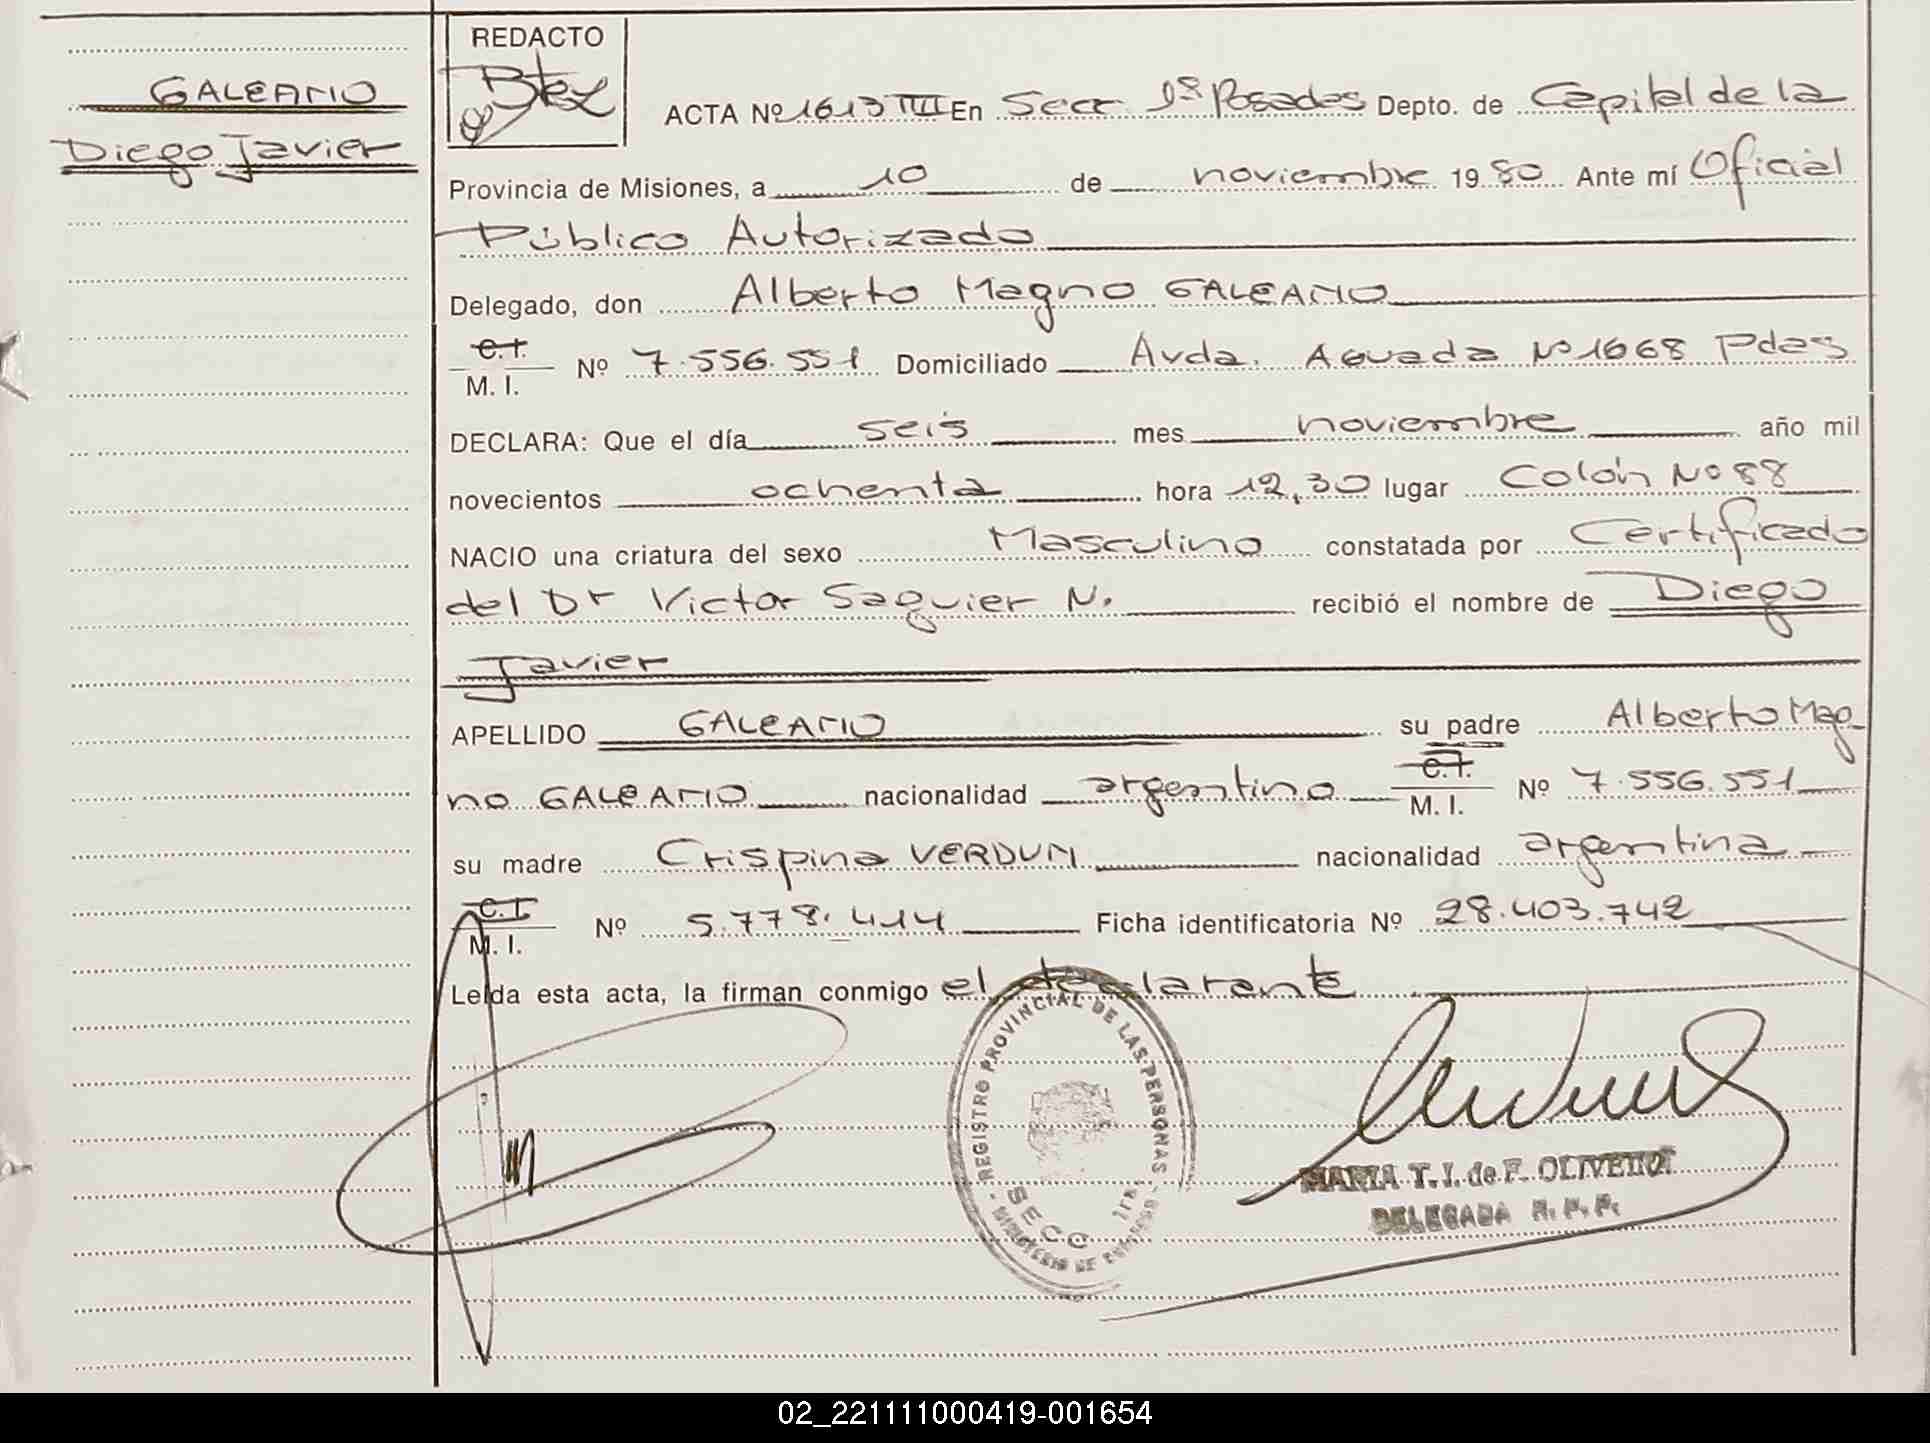 GALEANO
Diego Javier
REDACTO
Btez
ACTA Nº 1613 TIII En Secc 1ª Posadas Depto. de Capital de la
Provincia de Misiones, a 10 de noviembre 1980 Ante mí Oficial
Público Autorizado
Delegado, don Alberto Magno GALEANO
C.I.
M. I. Nº 7.556.551 Domiciliado Avda. Aguada Nº 1668 Pdas
DECLARA: Que el día seis mes noviembre año mil
novecientos ochenta hora 12,30 lugar Colón Nº 88
NACIO una criatura del sexo Masculino constatada por Certificado
del Dr Victor Saguier N. recibió el nombre de Diego
Javier
APELLIDO GALEANO su padre Alberto Mag
no GALEANO nacionalidad argentino C.I. M. I. Nº 7.556.551
su madre Crispina VERDUN nacionalidad argentina
C.I.
M. I. Nº 5.778.414 Ficha identificatoria Nº 28.403.742
Leída esta acta, la firman conmigo el declarante
REGISTRO PROVINCIAL DE LAS PERSONAS
SECC 1RA
MINISTERIO DE
MARIA T. I. de F. OLIVETTO
DELEGADA R. P. P.
02_221111000419-001654